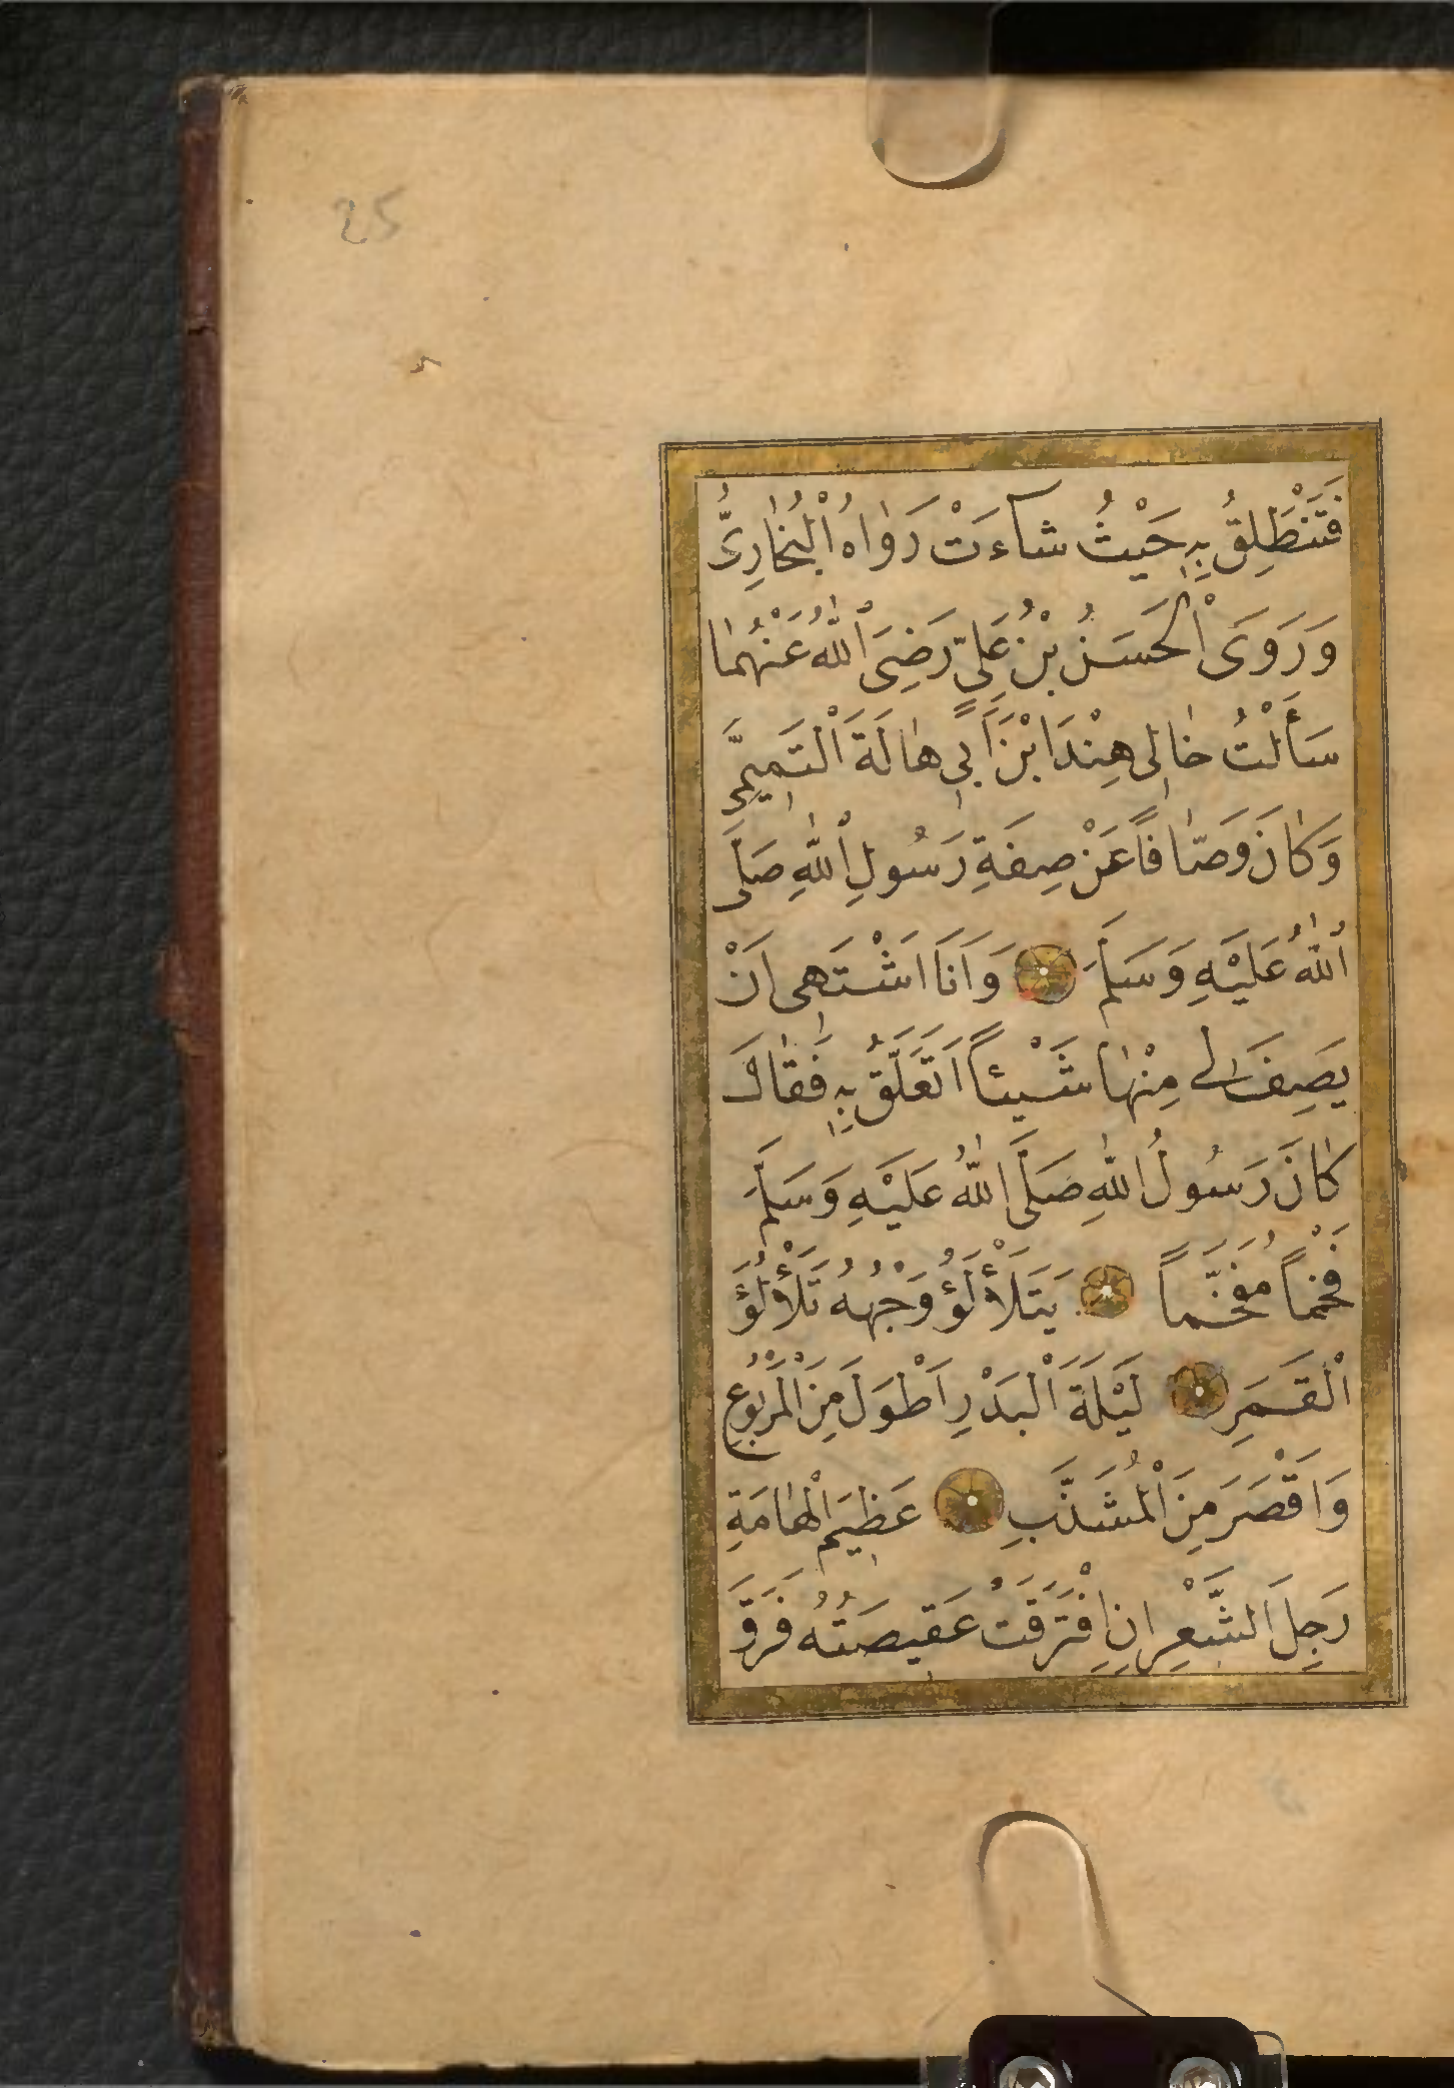 25
فَتَنْطَلِقُ بِهِ حَيْثُ شَاءَتْ رَوَاهُ الْبُخَارِيُّ
وَرَوَى الْحَسَنُ بْنُ عَلِيٍّ رَضِيَ اللهُ عَنْهُمَا
سَأَلْتُ خَالِي هِنْدَ ابْنَ اَبِي هَالَةَ الْتَمِيمِيَّ
وَكَانَ وَصَّافًا عَنْ صِفَةِ رَسُولِ اللهِ صَلَّى
اللهُ عَلَيْهِ وَسَلَّمَ وَاَنَا اَشْتَهِي اَنْ
يَصِفَ لِي مِنْهَا شَيْئًا اَتَعَلَّقُ بِهِ فَقَالَ
كَانَ رَسُولُ اللهِ صَلَّى اللهُ عَلَيْهِ وَسَلَّمَ
فَخْمًا مُفَخَّمًا يَتَلَأْلَؤُ وَجْهُهُ تَلَأْلُؤَ
الْقَمَرِ لَيْلَةَ الْبَدْرِ اَطْوَلَ مِنَ الْمَرْبُوعِ
وَاَقْصَرَ مِنَ الْمُشَذَّبِ عَظِيمَ الْهَامَةِ
رَجِلَ الشَّعْرِ اِنِ افْتَرَقَتْ عَقِيصَتُهُ فَرَقَ